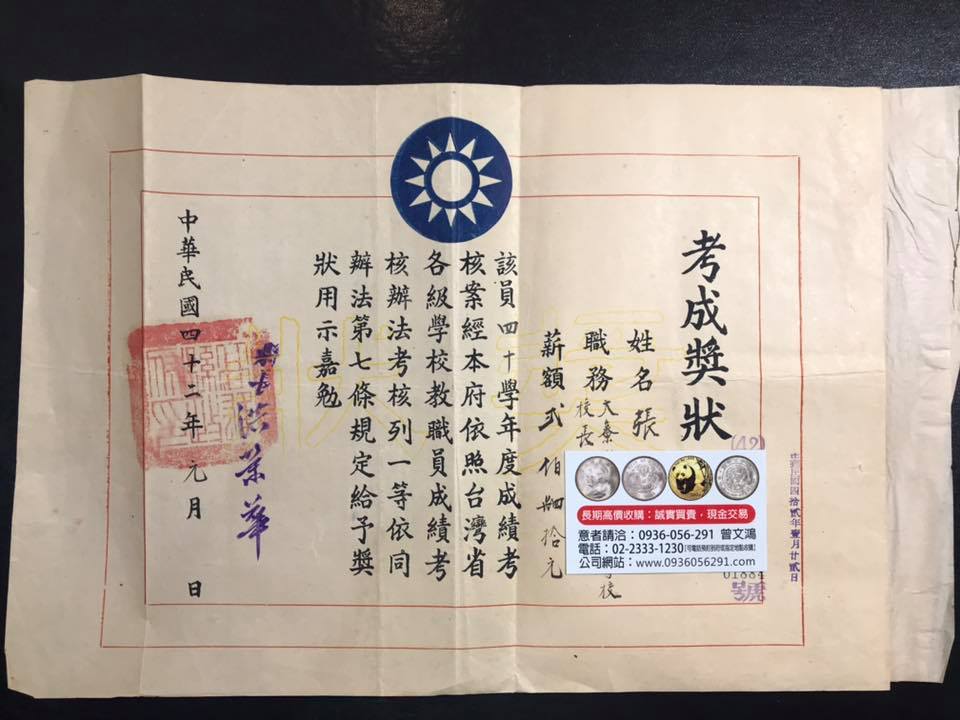 考成獎狀
姓名 張
職務 大
校長
校
薪額 貳佰肆拾元
該員四十學年度成績考
核案經本府依照台灣省
各級學校教職員成績考
核辦法考核列一等依同
辦法第七條規定給予獎
狀用示嘉勉
中華民國四十二年 元月 日
獎狀
(42)
01884
號
中華民國四拾貳年壹月廿貳日
長期高價收購:誠實買賣,現金交易
意者請洽:0936-056-291 曾文鴻
電話:02-2333-1230(可電話預約到府或指定地點收購)
公司網站:www.0936056291.com